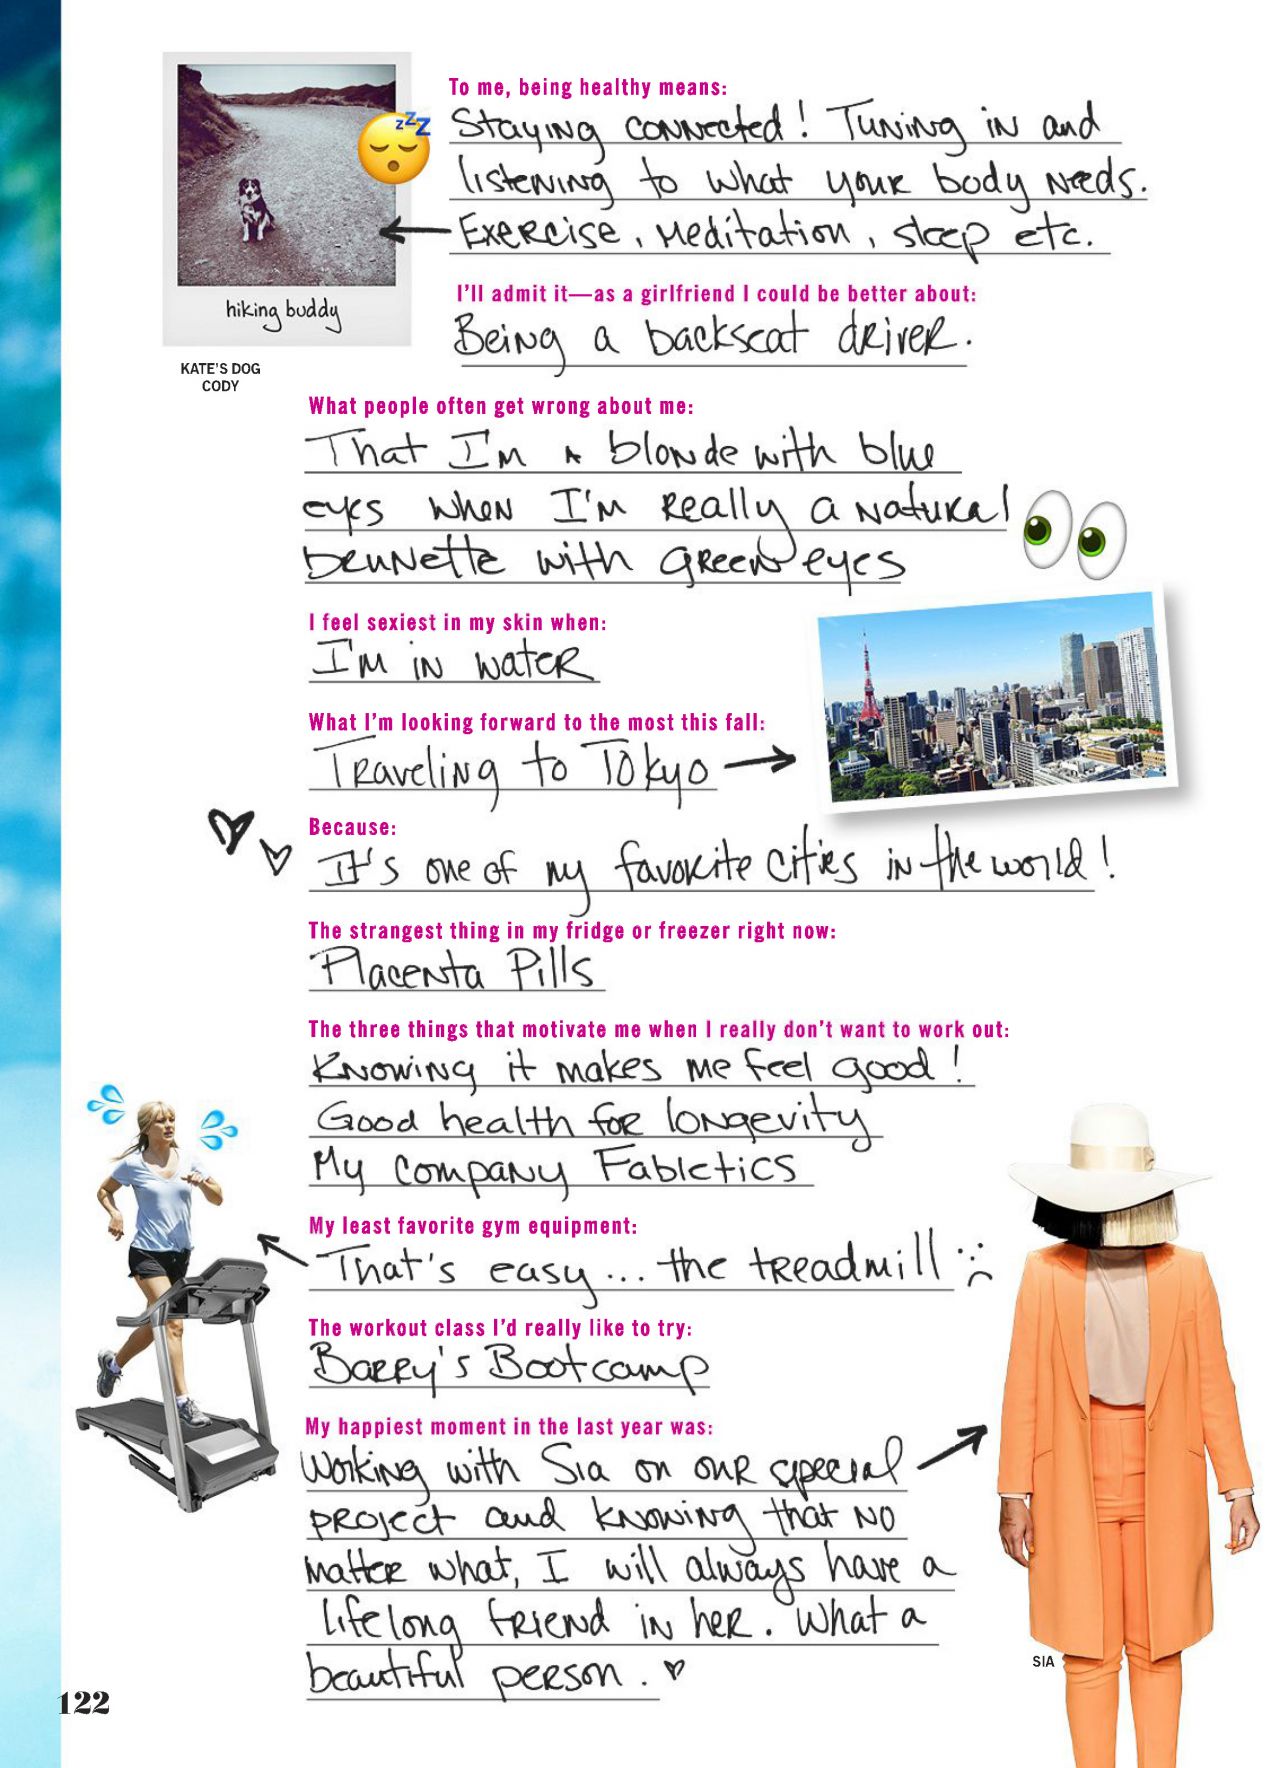 To me, being healthy means:
Staying connected! Tuning in and
listening to what your body needs.
Exercise, Meditation, sleep etc.
zzZ
hiking buddy
KATE'S DOG
CODY
I'll admit it—as a girlfriend I could be better about:
Being a backseat driver.
What people often get wrong about me:
That I'm a blonde with blue
eyes when I'm really a natural
brunette with green eyes
I feel sexiest in my skin when:
I'm in water
What I'm looking forward to the most this fall:
Traveling to Tokyo
Because:
It's one of my favorite cities in the world!
The strangest thing in my fridge or freezer right now:
Placenta Pills
The three things that motivate me when I really don't want to work out:
Knowing it makes me feel good!
Good health for longevity
My company Fabletics
My least favorite gym equipment:
That's easy... the treadmill :(
The workout class I'd really like to try:
Barry's Bootcamp
My happiest moment in the last year was:
Working with Sia on our special
project and knowing that no
matter what, I will always have a
lifelong friend in her. What a
beautiful person.
SIA
122